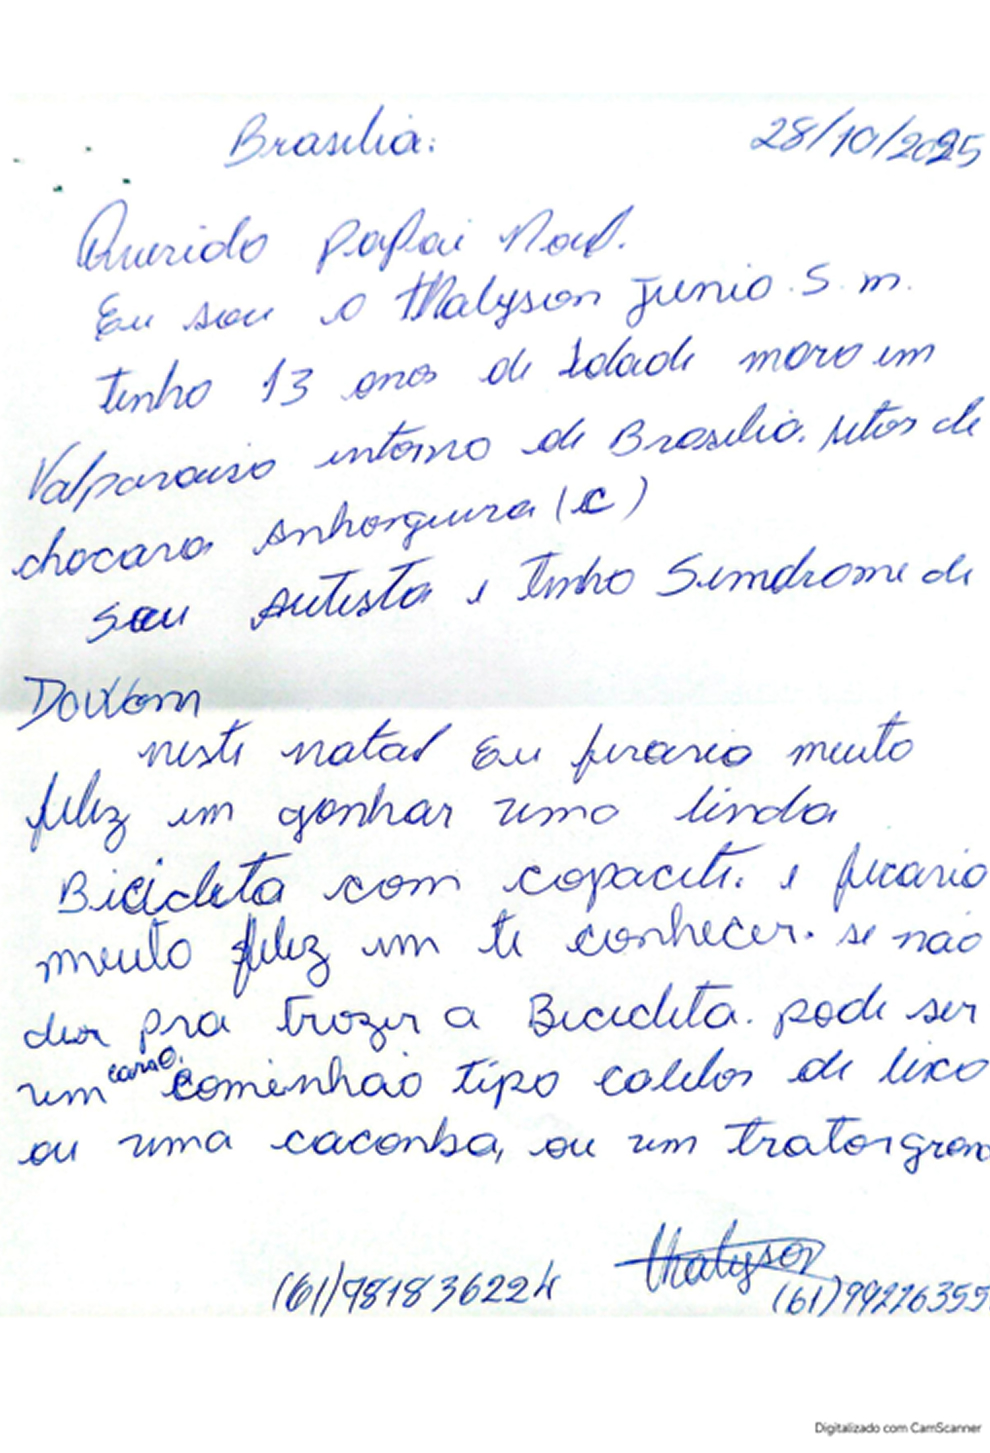 Brasilia: 28/10/2025
Querido papai Noel.
Eu sou o Thalyson junio. S. m.
tenho 13 anos de Idade moro em
Valparaiso intorno de Brasilia. setor de
chacara Anhanguera (C)
Sou Autista e tenho Simdrome de
Dowom
neste natal Eu ficaria muito
feliz em ganhar uma linda
Bicicleta com capacete. e ficaria
muito feliz em te conhecer. se não
der pra trazer a Bicicleta. pode ser
um carro. caminhão tipo coletor de lixo
ou uma caconba, ou um trator gran
Thalyson
(61) 981836224 (61) 99226355
Digitalizado com CamScanner